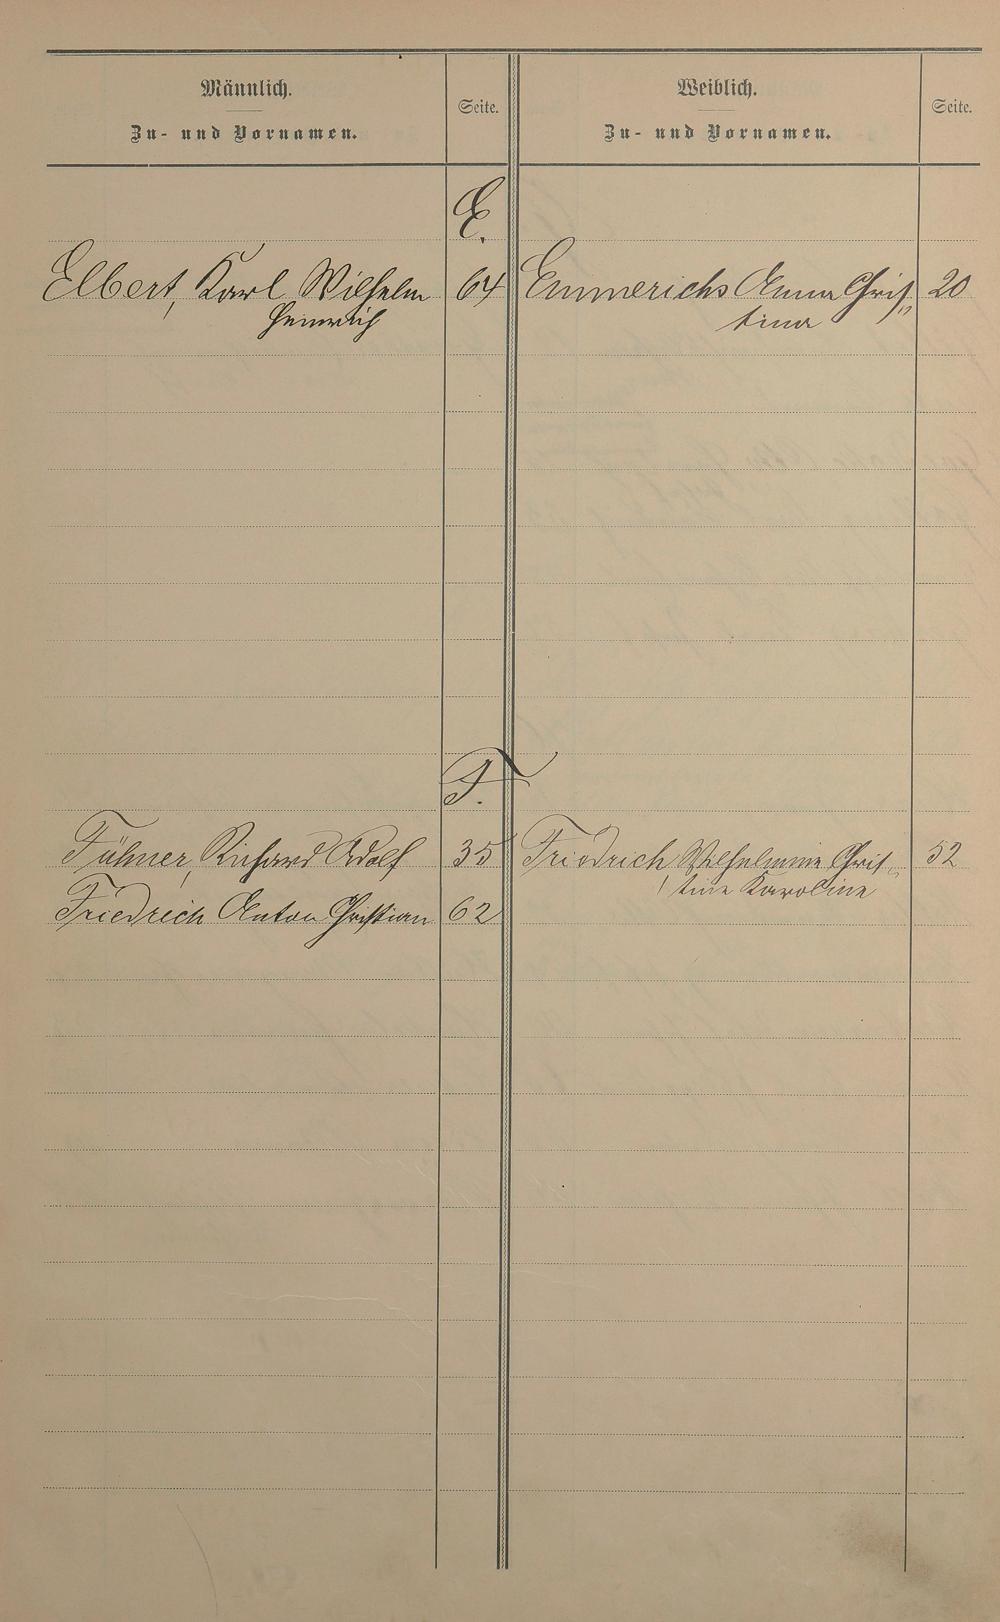 Männlich.
Zu- und Vornamen.
Seite.
Weiblich.
Zu- und Vornamen.
Seite.
E.
Elbert, Karl Wilhelm 64
Heinrich
Emmerichs Anna Chris„ 20
tina
F.
Fühner, Richard Adolf 35
Friedrich Anton Christian 62
Friedrich, Wilhelmine Chris„ 52
tine Karoline